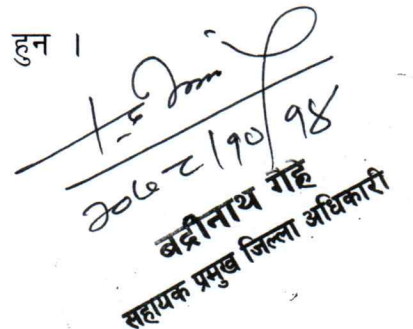 हुन ।
२०७८।१०।१४
बद्रीनाथ गैह्रे
सहायक प्रमुख जिल्ला अधिकारी